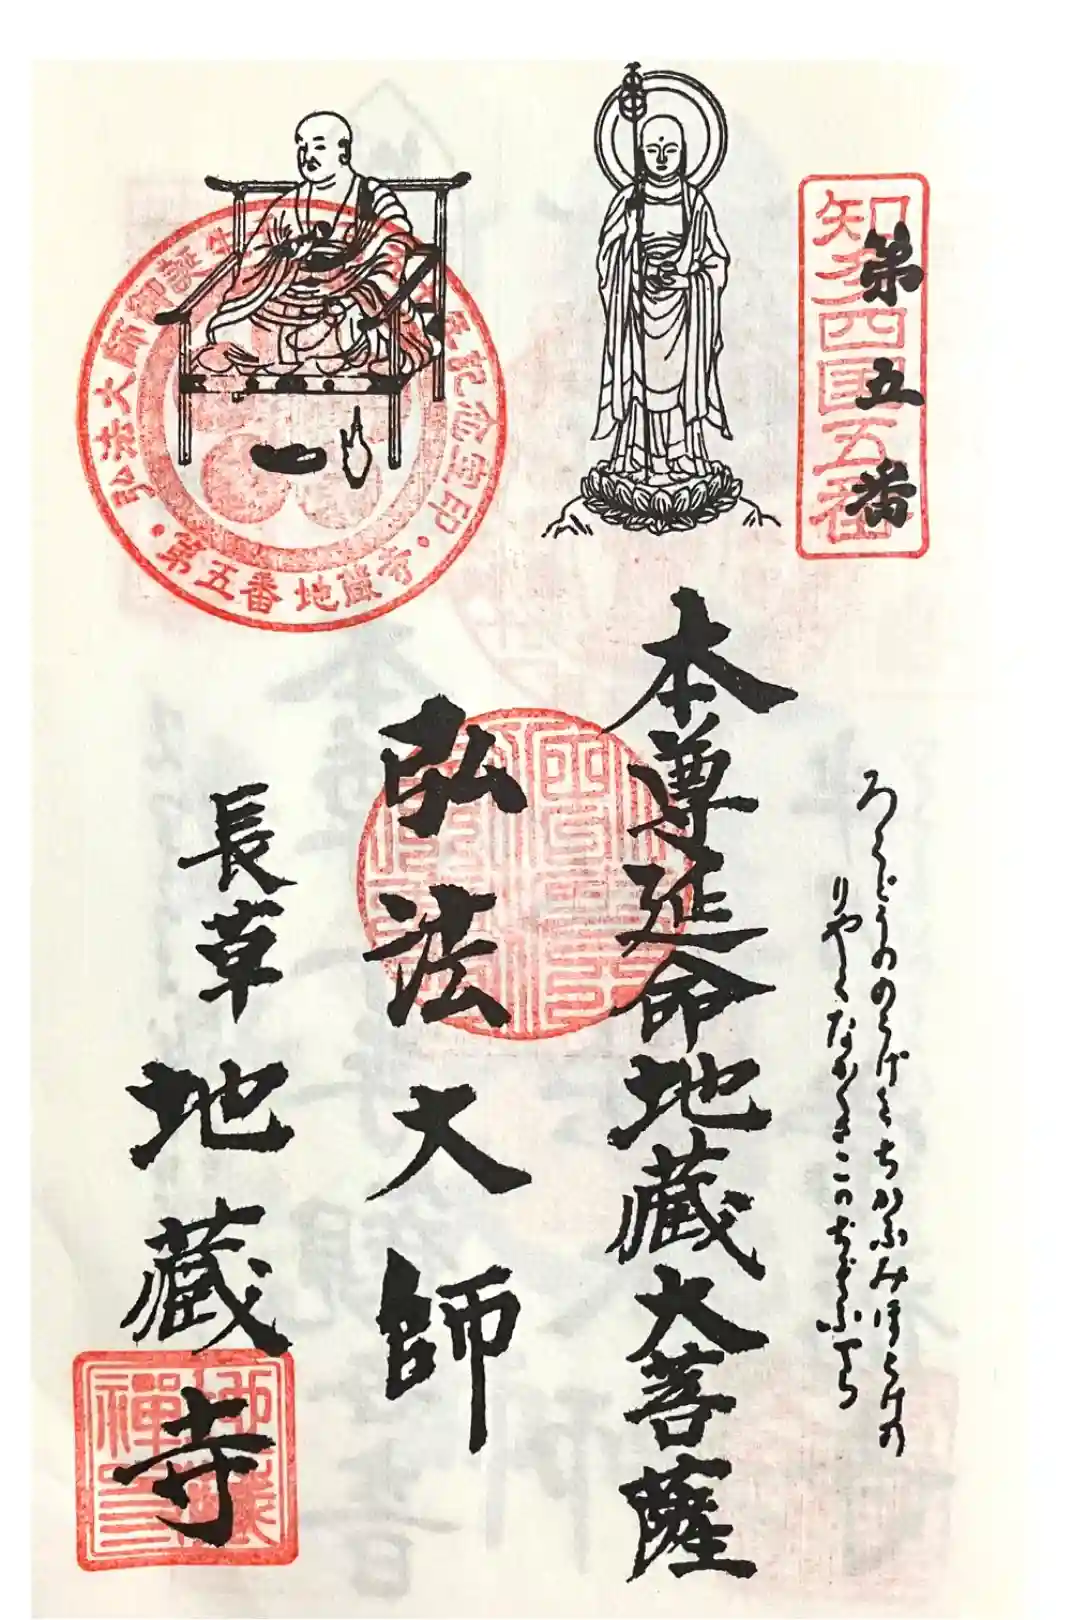 知多四国五番
第五番
ろくどうののうげとちかふみほとけの
りやくなかくさこのぢざふでら
本尊延命地蔵大菩薩
弘法大師
長草地蔵寺
弘法大師御誕生
年記念宝印
第五番地蔵寺